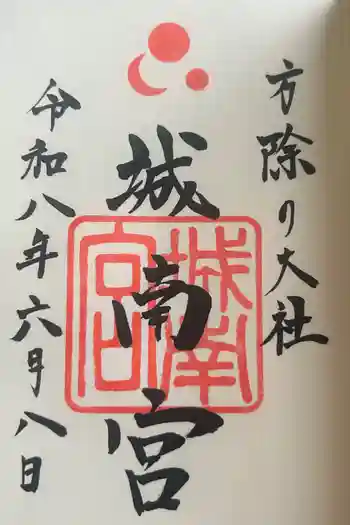 方除の大社
城南宮
城南宮
令和八年六月八日